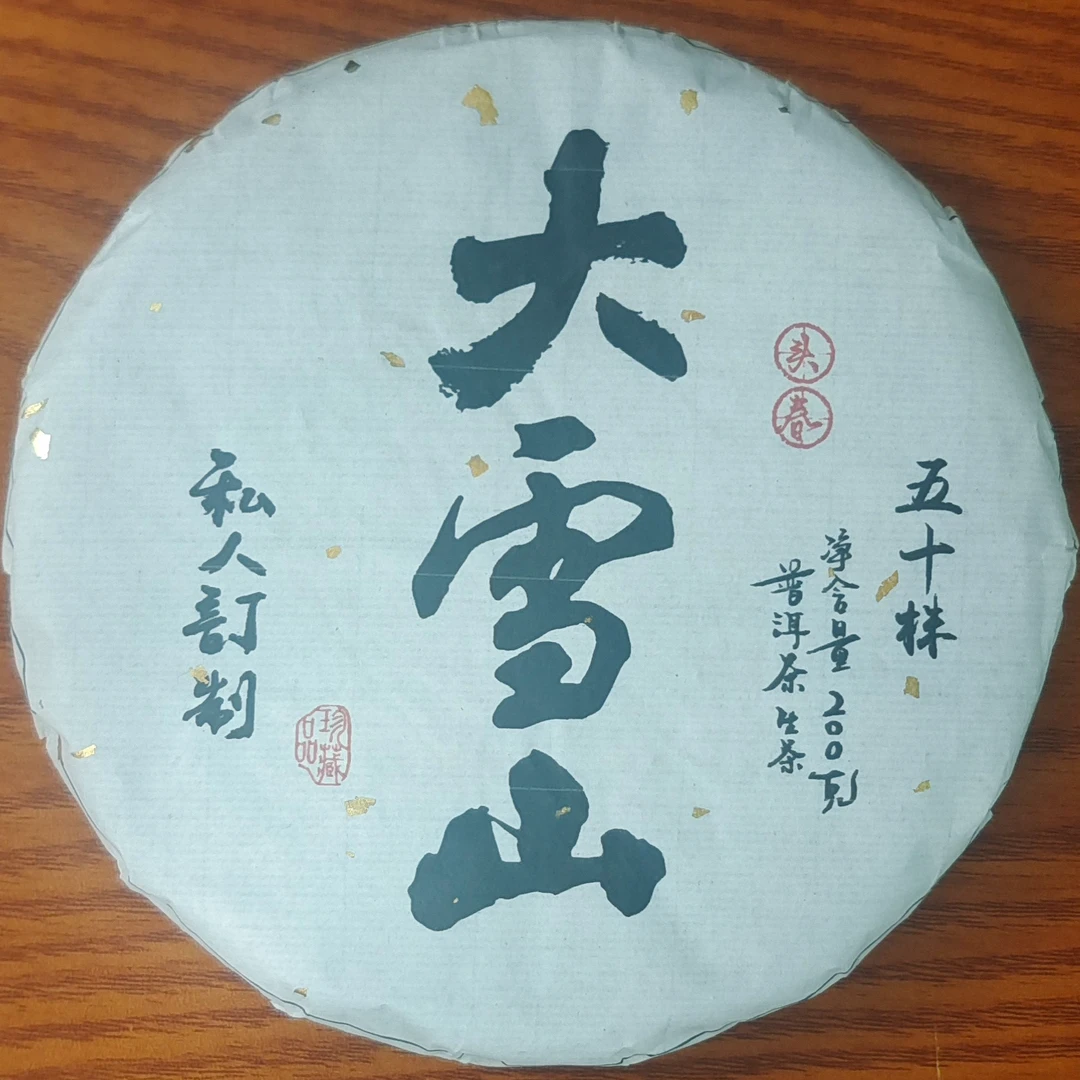 大雪山
头春
五十株
净含量200克
普洱茶生茶
私人訂制
珍藏品